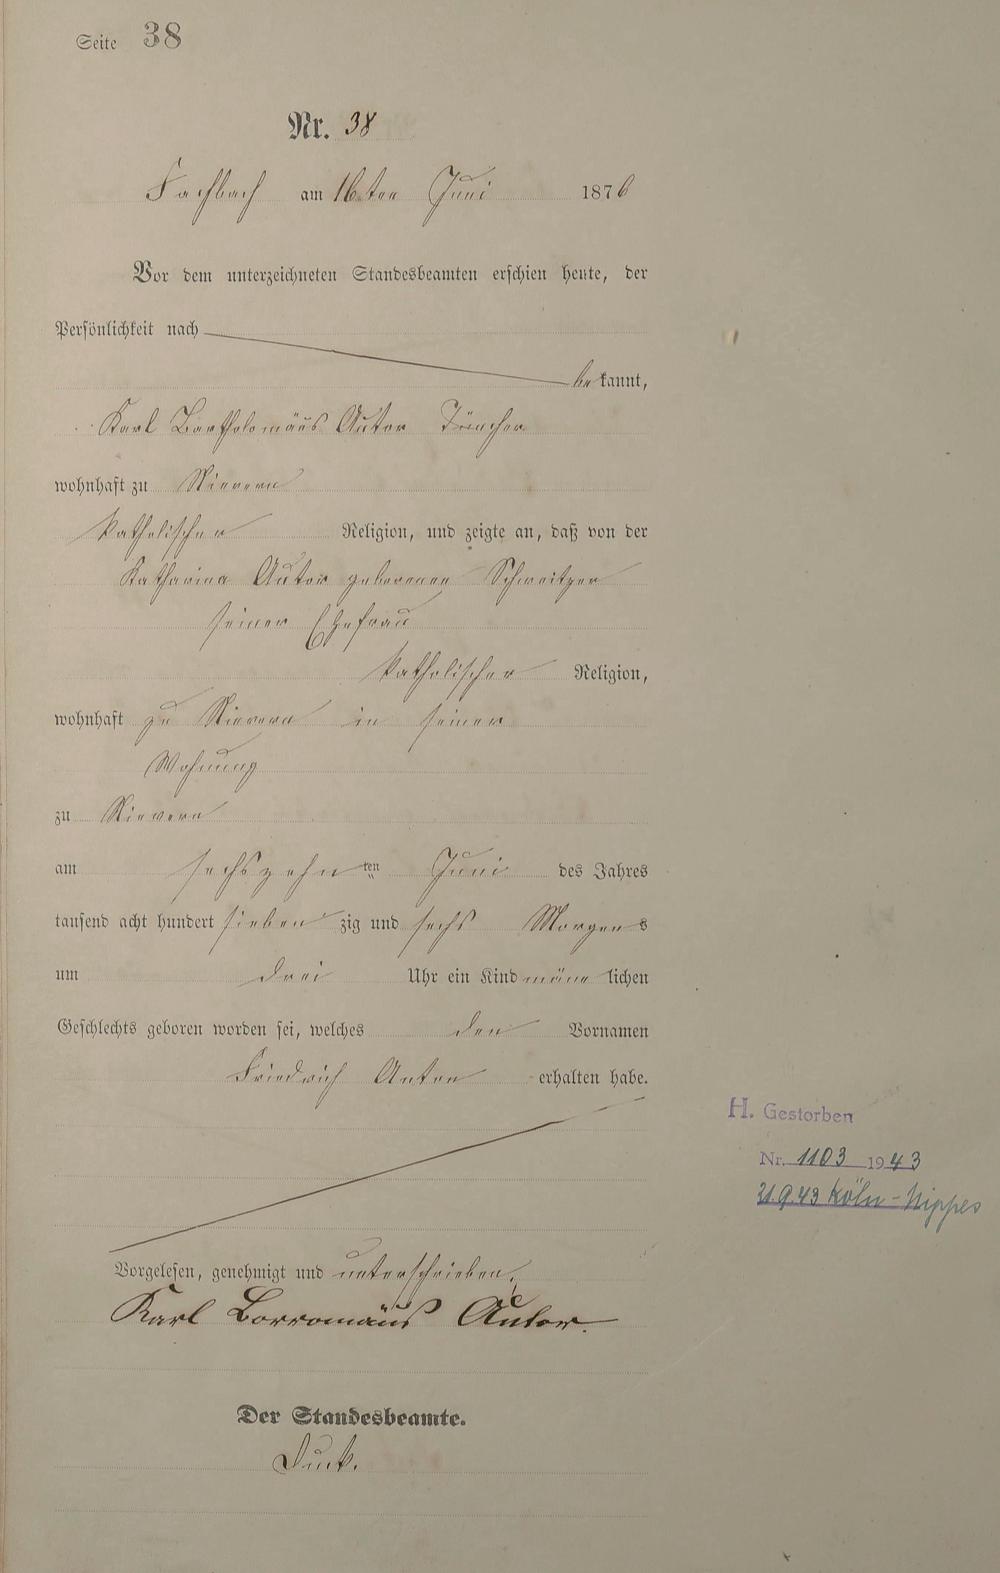 Seite 38
Nr. 38
Fachbach am 16ten Juni 1876
Vor dem unterzeichneten Standesbeamten erschien heute, der
Persönlichkeit nach
bekannt,
Karl Bartholomäus Autor Tüncher
wohnhaft zu Nievern
katholischer Religion, und zeigte an, daß von der
Katharina Autor geborenen Schweitzer
seiner Ehefrau
katholischer Religion,
wohnhaft zu Nievern in seiner
Wohnung
zu Nievern
am sechszehnten Juni des Jahres
tausend acht hundert siebenzig und sechs Morgens
um drei Uhr ein Kind männlichen
Geschlechts geboren worden sei, welches den Vornamen
Friedrich Anton erhalten habe.
Vorgelesen, genehmigt und unterschrieben.
Karl Borromäus Autor
Der Standesbeamte.
H. Gestorben
Nr. 1103 1943
21.9.43 Köln-Nippes